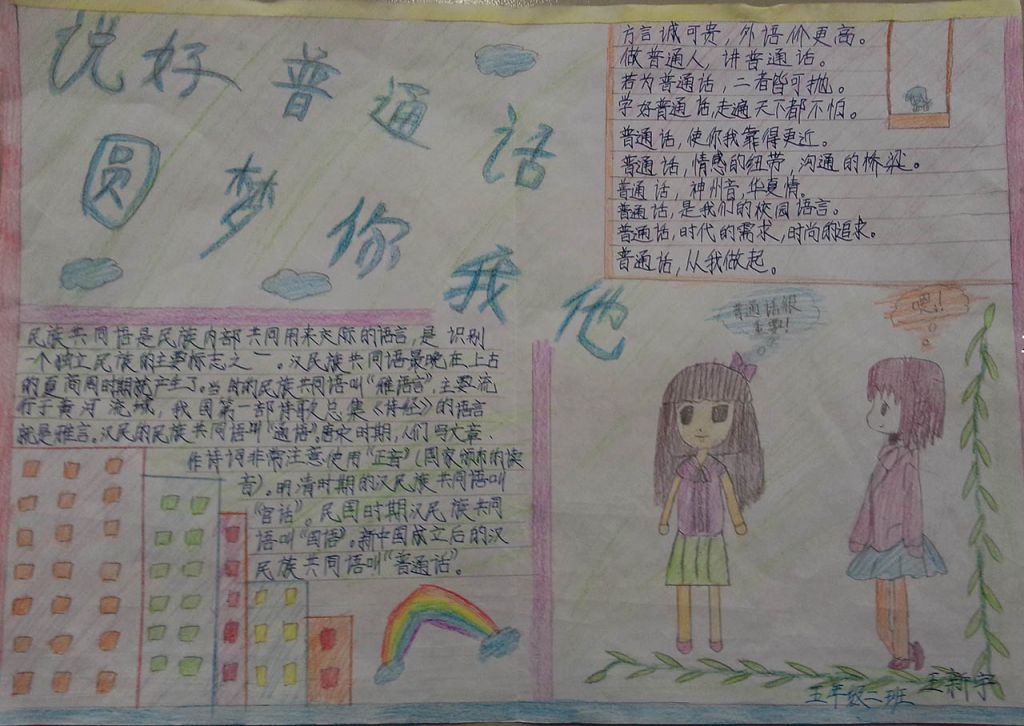 说好普通话
圆梦你我他
方言诚可贵，外语价更高。
做普通人，讲普通话。
若为普通话，二者皆可抛。
学好普通话走遍天下都不怕。
普通话，使你我靠得更近。
普通话，情感的纽带，沟通的桥梁。
普通话，神州音，华夏情。
普通话，是我们的校园语言。
普通话，时代的需求，时尚的追求。
普通话，从我做起。
民族共同语是民族内部共同用来交际的语言，是识别
一个独立民族的主要标志之一。汉民族共同语最晚在上古
的夏商周时期就产生了。当时的民族共同语叫“雅语言”，主要流
行于黄河流域，我国第一部诗歌总集《诗经》的语言
就是雅言。汉民的民族共同语叫“通语”。唐宋时期，人们写文章、
作诗词非常注意使用“正音”（国家颁布的读
音）。明清时期的汉民族共同语叫
“官话”。民国时期汉民族共同
语叫“国语”。新中国成立后的汉
民族共同语叫“普通话”。
普通话很
重要！
嗯！
五年级二班 王新宇